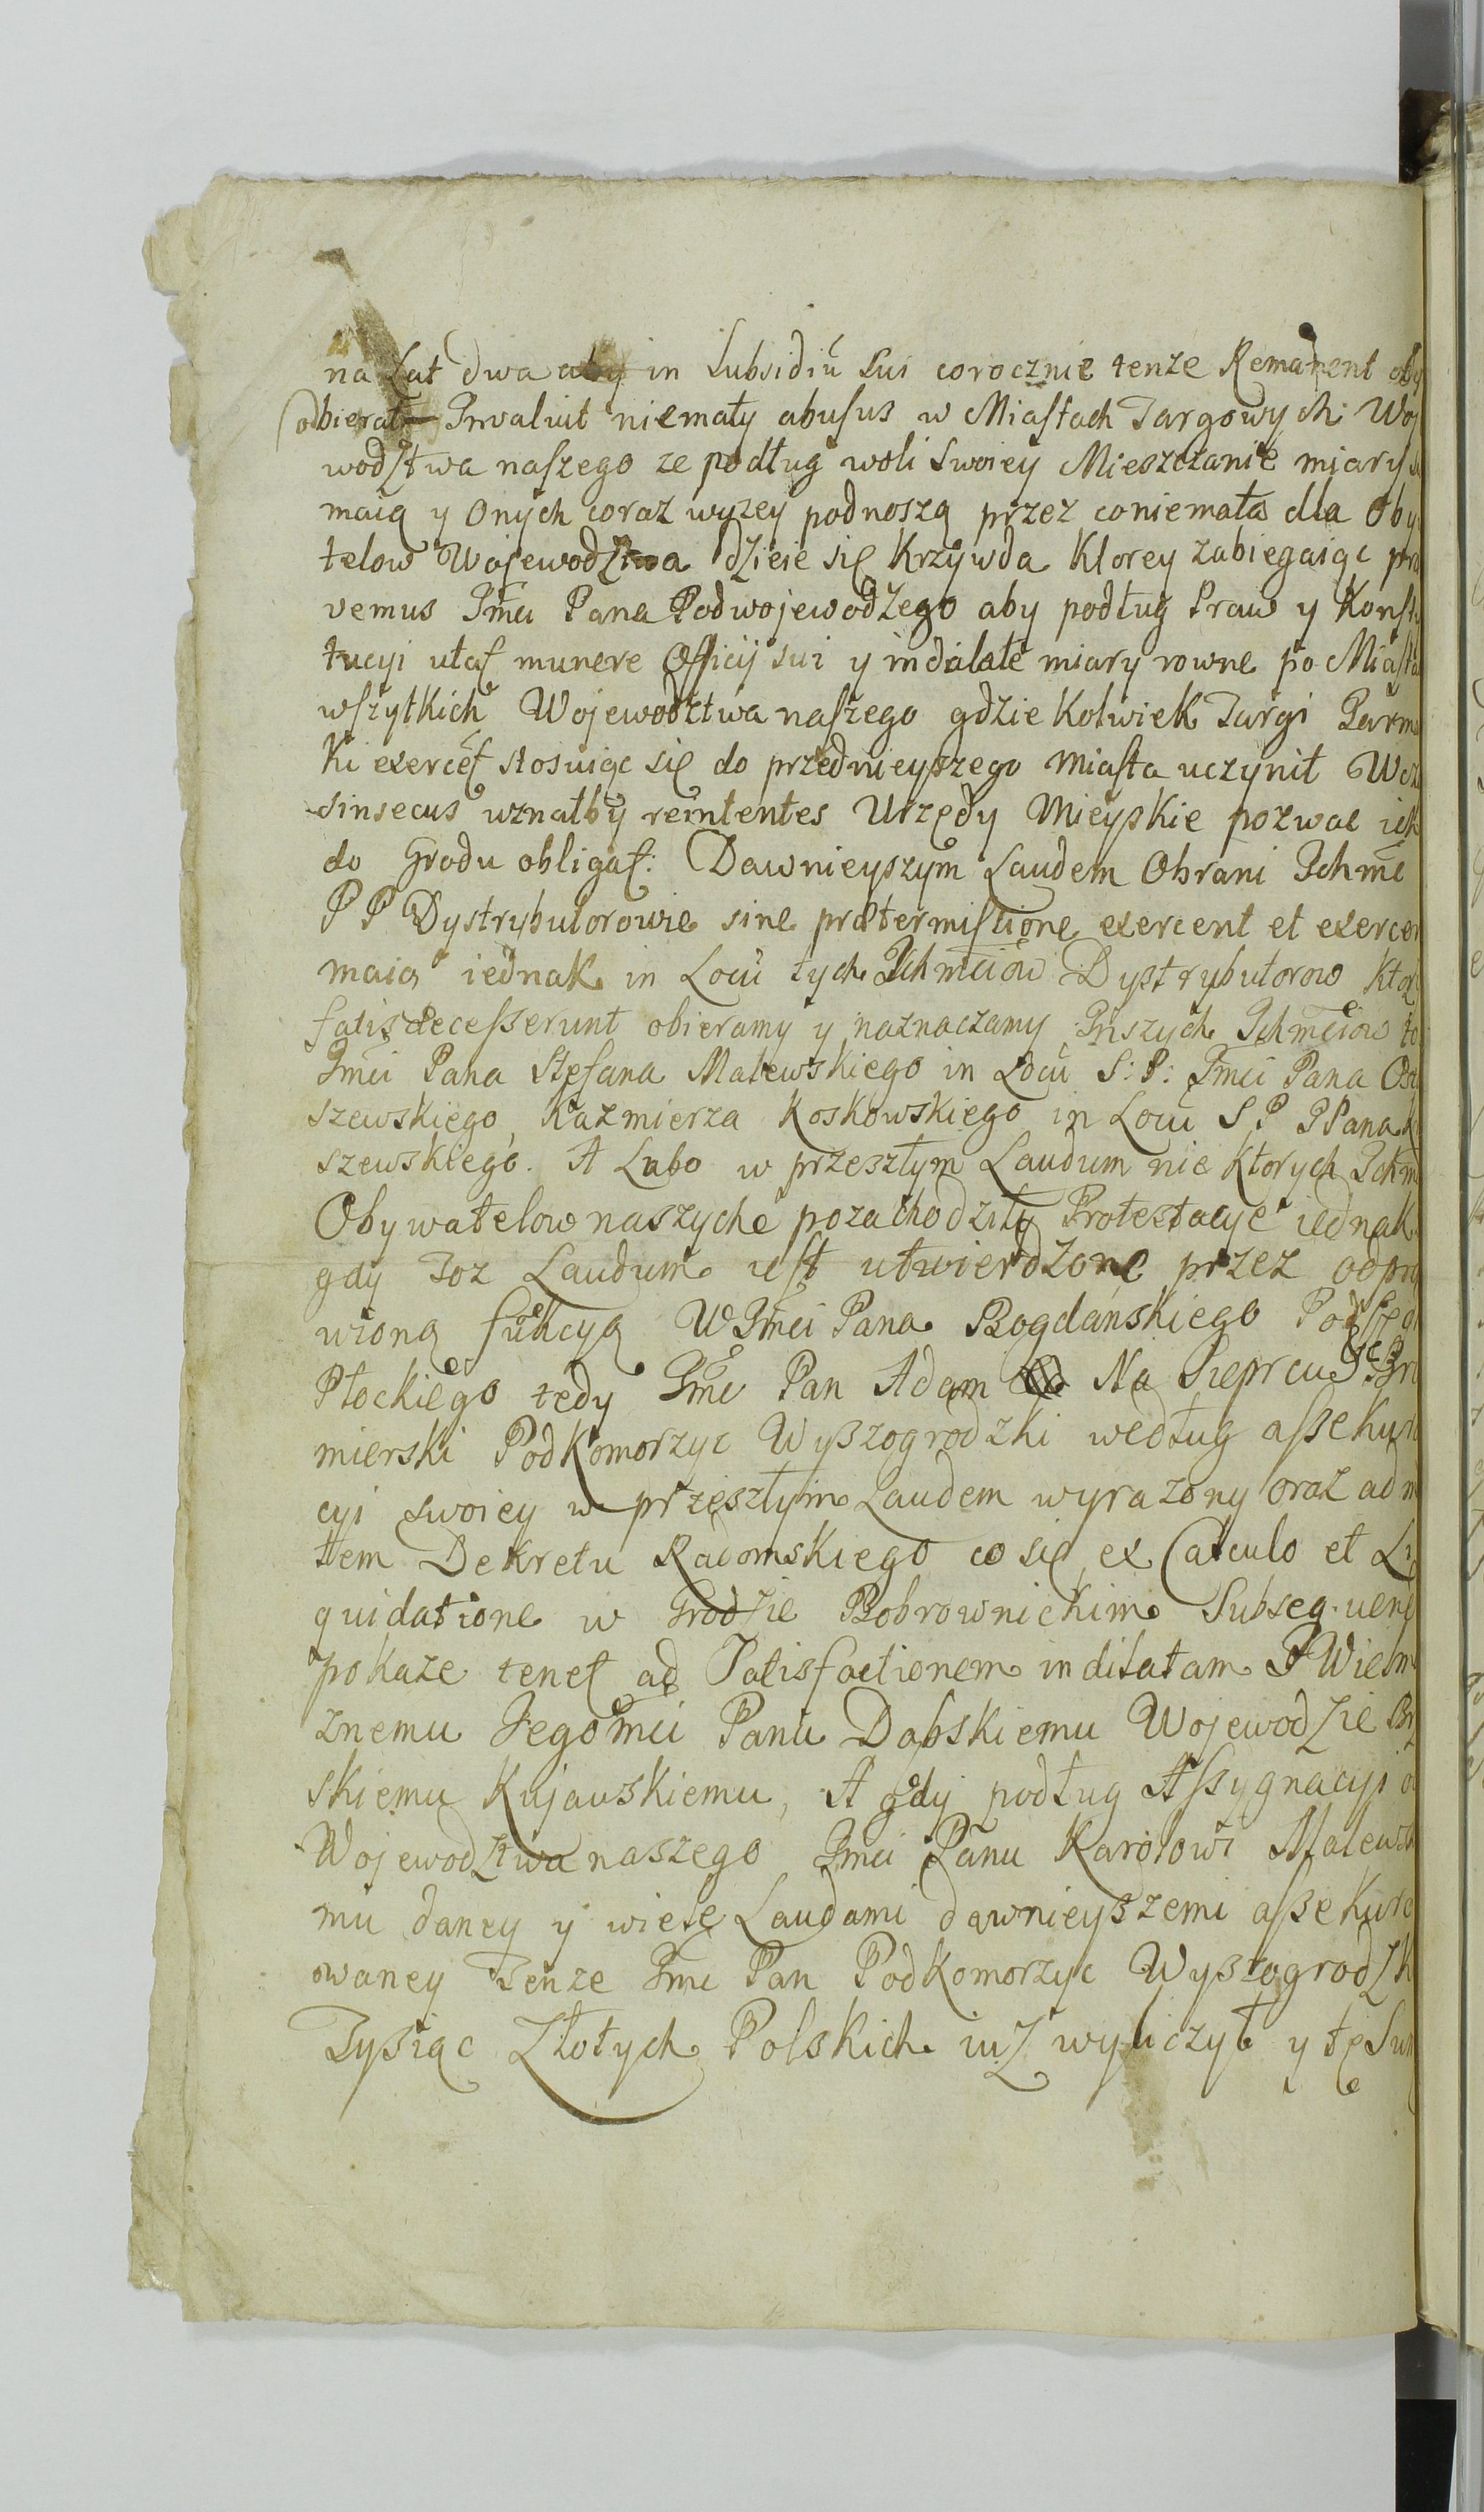 na Lat dwa aby in Subsidiū Sui corocznie tenze Remanent oby
odbierał Invaluit niemały abusus w Miastach Targowych Woj
wodztwa naszego ze podług woli swoiey Mieszczanie miary
maią y Onych coraz wyzey podnoszą przez co niemała dla Oby
telow Wojewodztwa dzieie się Krzywda Ktorey zabiegaiąc pro
vemus Jmci Pana Podwojewodzego aby podług Praw y Konsty
tucyi utať munere Officij sui y indilate miary rowne po Miasta
wszytkich Wojewodztwa naszego gdzie Kolwiek Targi Jarm
Ki exercēť stosuiąc się do przednieyszego Miasta uczynił
sinsecus uznałby renitentes Urzędy Mieyskie pozwac ich
do Grodu obligať: Dawnieyszym Laudem Obrani Ichmć
P P Dystrybutorowie sine prætermissione exercent et exercer
maią iednak in Locū tych Ichmciow Dystrybutorow Kto
fatis decesserunt obieramy y naznaczamy Inszych Ichmciow to
Jmci Pana Stefana Malewskiego in Locū S: P: Jmci Pana
szewskiego, Kazmierza Koskowskiego in Locū S P JPana K
szewskiego. A Lubo w przeszłym Laudum nie Ktorych Ichm
Obywatelow naszych pozachodziły Protestacye iednak
gdy Toz Laudum iest utwierdzone przez odpra
wioną fūkcyą WJmci Pana Bogdanskiego Podsęd
Płockiego tedy Jmć Pan Adam Na Sieprcu
mierski PodKomorzyc Wyszogrodzki według assekura
cyi swoiey w przeszłym Laudem wyrazony oraz ad m
tem Dekretu Radomskiego co się ex Calculo et Li
quidatione w Grodzie Bobrownickim Subseq. uenť
pokaze teneť ad Satisfactionem indilatam J Wielm
znemu Jegomci Panu Dąbskiemu Wojewodzie Brz
skiemu Kujawskiemu, A gdy podług Assygnacyi o
Wojewodztwa naszego Jmci Panu Karolowi Malewsk
mu daney y wielę Laudami dawnieyszemi assekura
owaney Tenze Jmć Pan PodKomorzyc Wyszogrodzk
Tysiąc Złotych Polskich iuz wyliczył y tę Sum